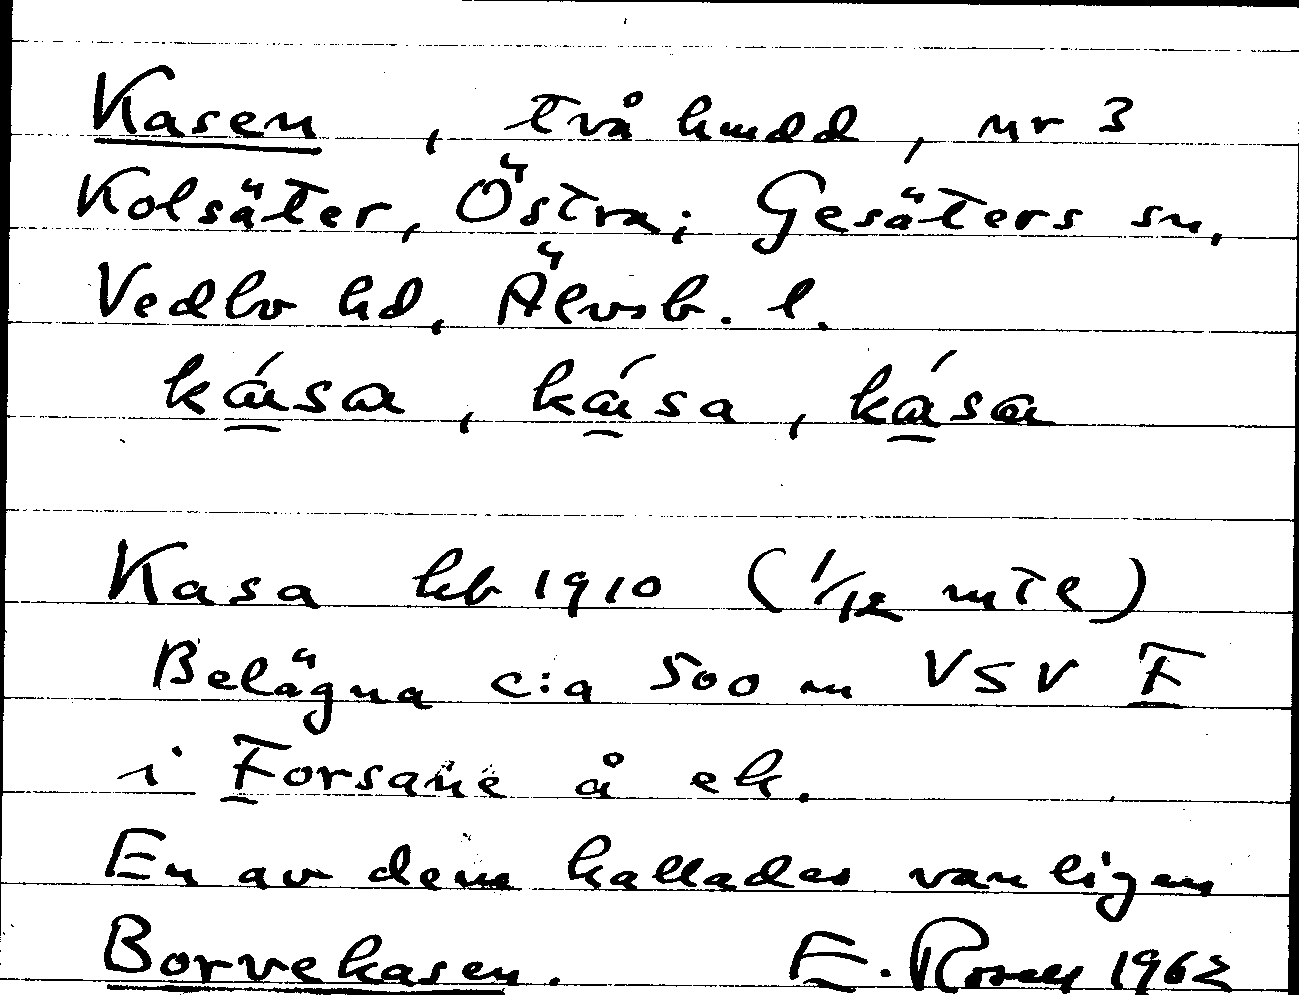 Kasen, två hmdd, nr 3
Kolsäter, Östra; Gesäters sn,
Vedbo hd, Älvsb. l.
ká̲sa, ká̲sa, ká̲sa
Kasa hb 1910 (1/12 mtl)
Belägna c:a 500 m VSV F
i Forsane å ek.
En av dem kallades vanligen
Borvekasen. E. Rosell 1962